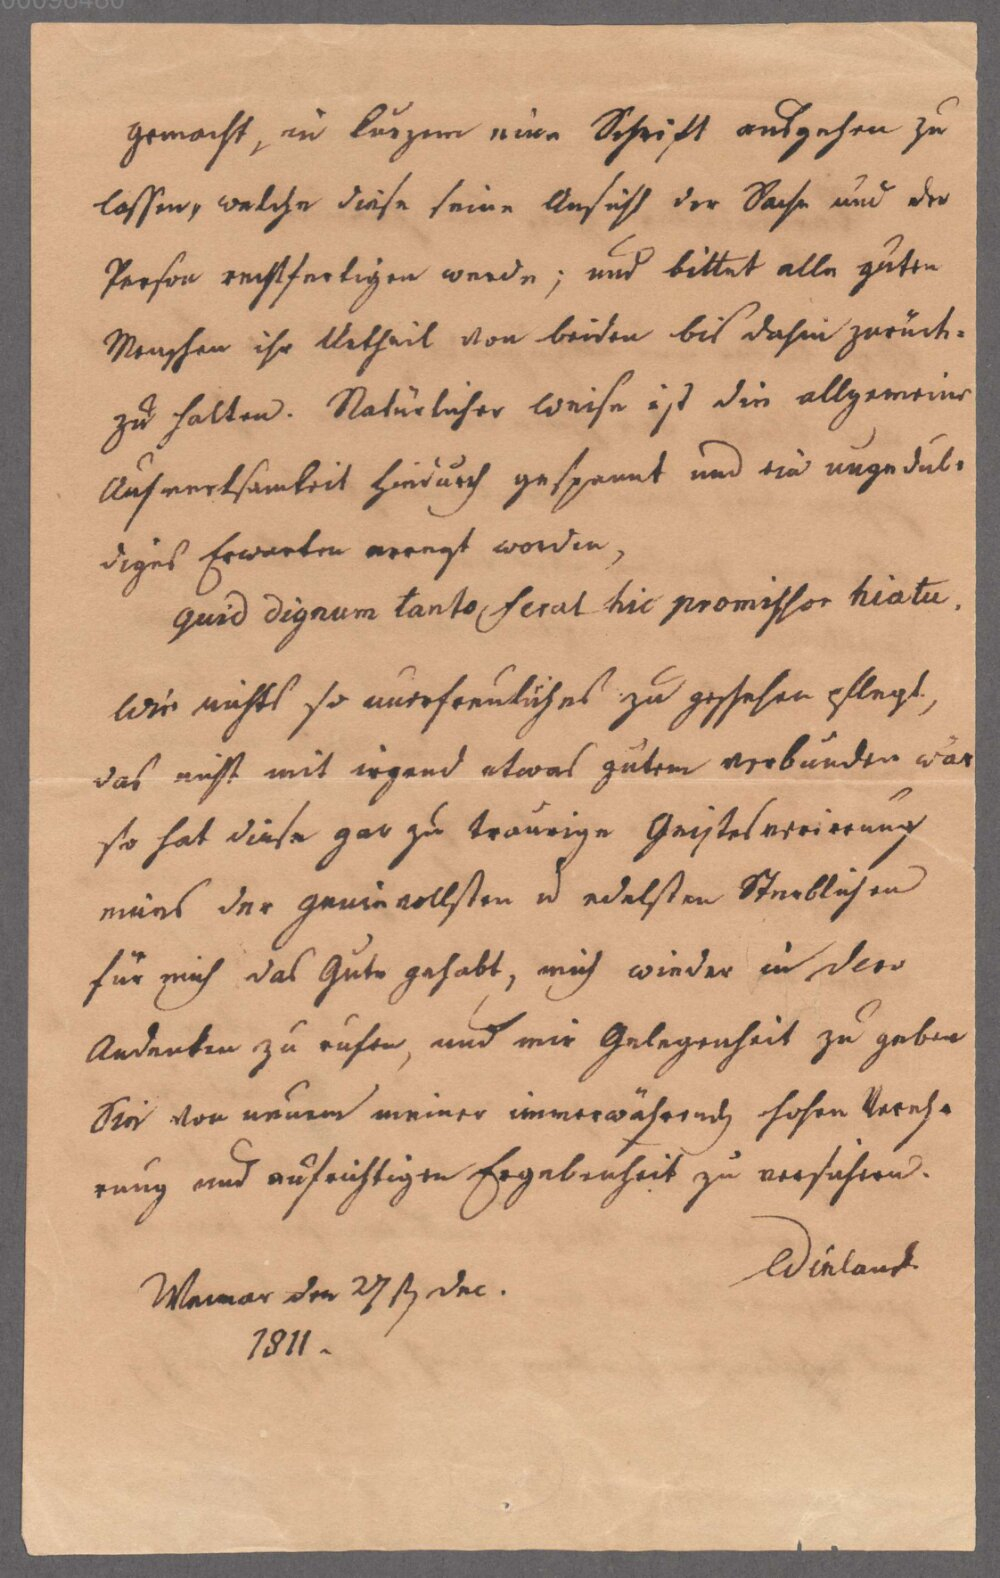 gemacht, in kurzem eine Schrift ausgehen zu
lassen, welche diese seine Ansicht der Sache und der
Person rechtfertigen werde; und bittet alle guten
Menschen ihr Urtheil von beiden bis dahin zurück-
zu halten. Natürlicher Weise ist die allgemeine
Aufmerksamkeit hiedurch gespannt und ein ungedul-
diges Erwarten erregt worden,
quid dignum tanto ferat hic promissor hiatu.
Wie nichts so unerfreuliches zu geschehen pflegt,
das nicht mit irgend etwas gutem verbunden wär
so hat diese gar zu traurige Geistesverirrung
eines der genievollsten u edelsten Sterblichen
für mich das Gute gehabt, mich wieder in Dero
Andenken zu rufen, und mir Gelegenheit zu geben
Sie von neuem meiner immerwährenden hohen Vereh-
rung und aufrichtigen Ergebenheit zu versichern.
Wieland
Weimar den 27 st dec.
1811.